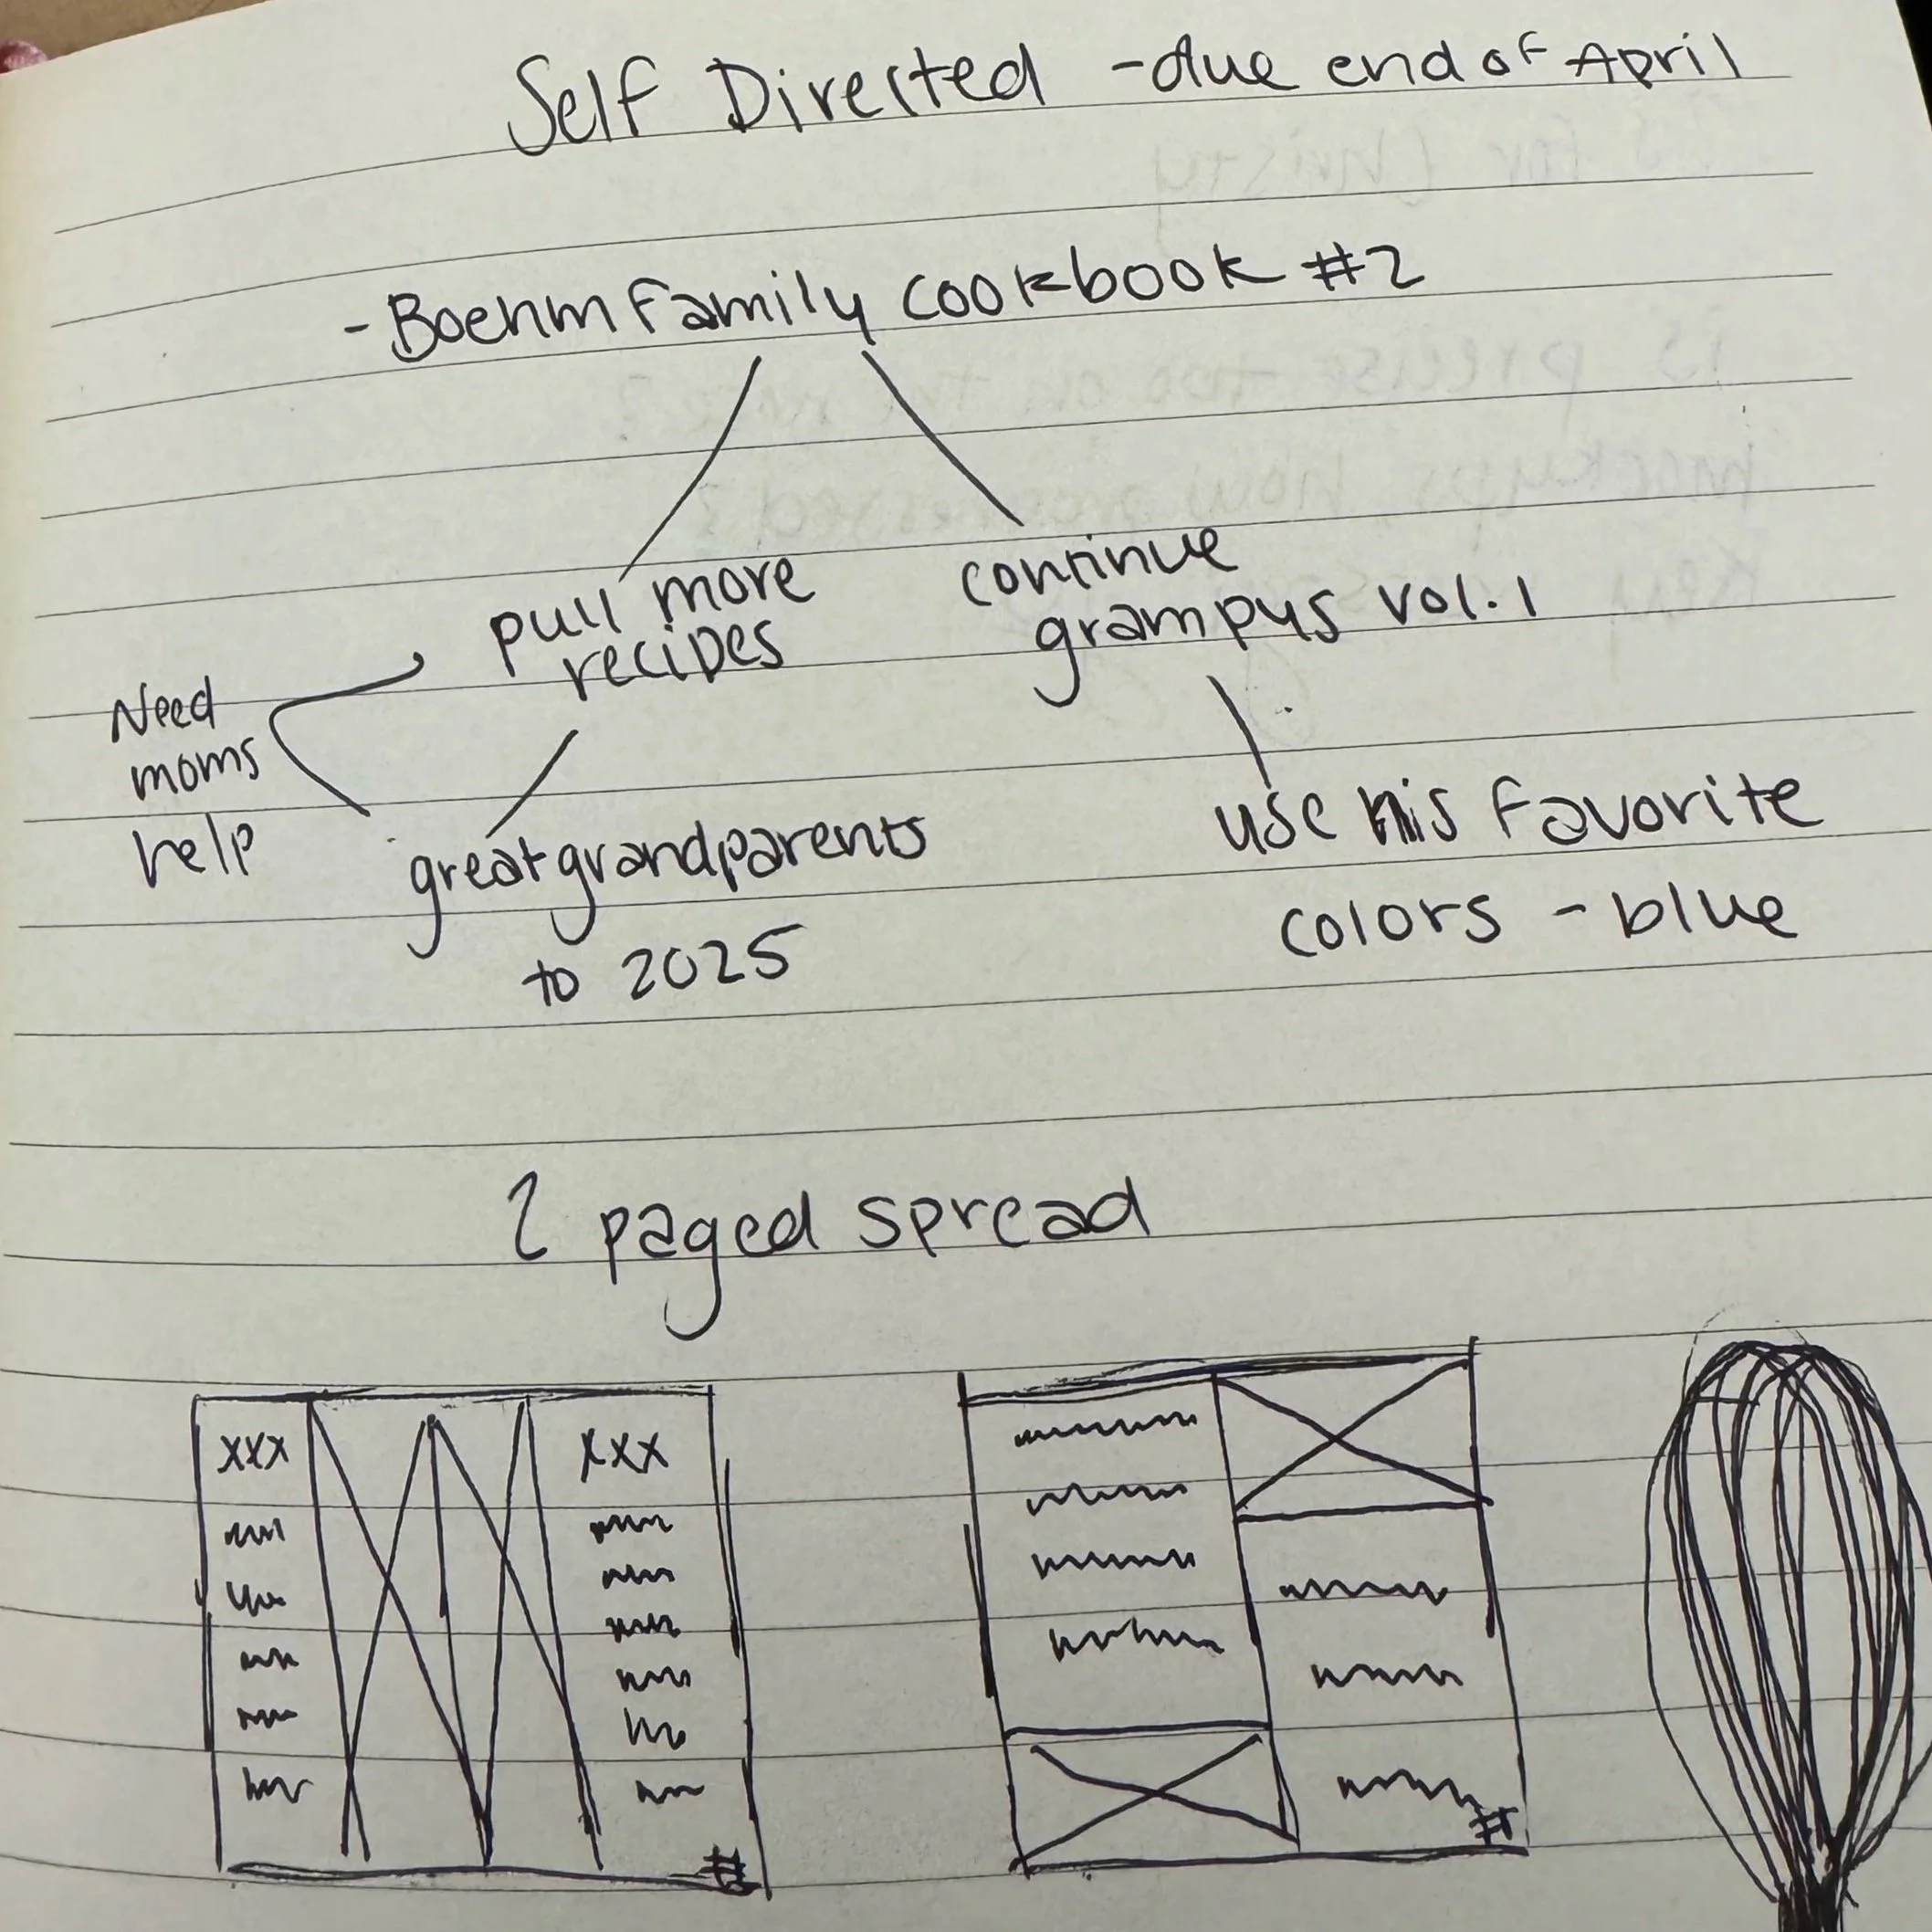 Self Directed - due end of April
- Boehm Family cookbook #2
pull more
recipes
continue
grampys vol. 1
Need
moms
help
great grandparents
to 2025
use his favorite
colors - blue
2 paged spread
xxx
xxx
#
#